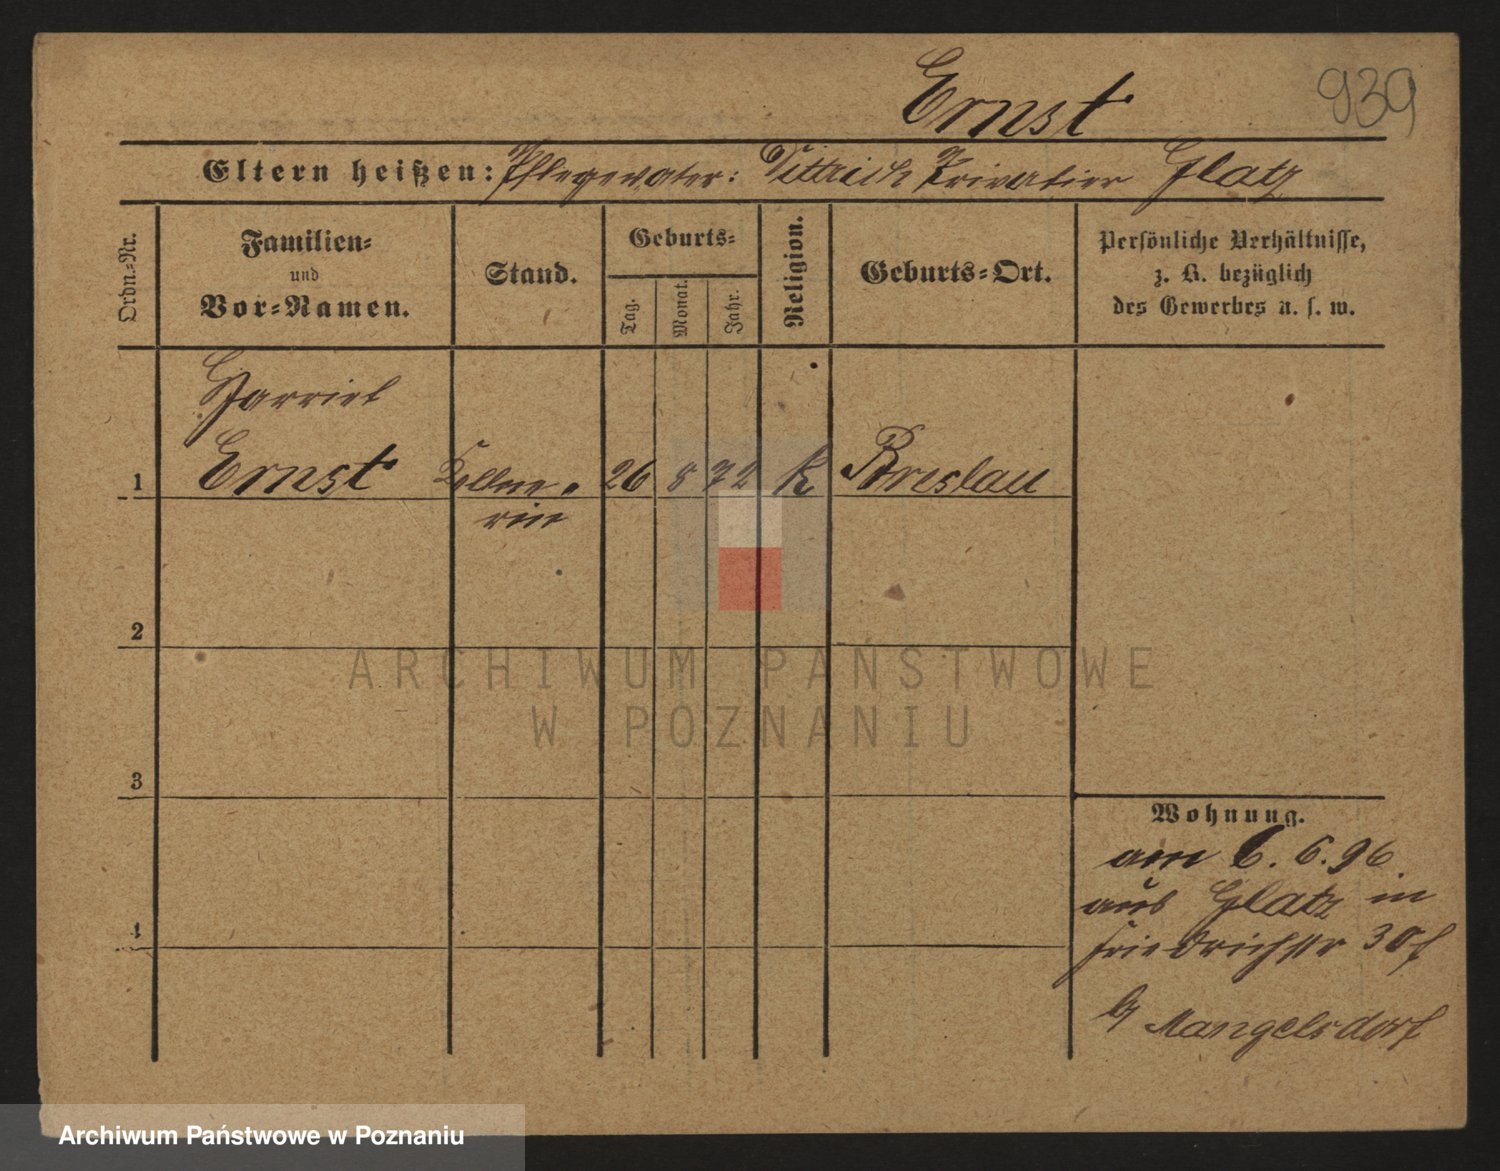 Ernst
939
Eltern heißen: Pflegevater: Dittrich Privatier Glatz
Ordn.=Nr.
Familien=
und
Vor=Namen.
Stand.
Geburts=
Tag.
Monat.
Jahr.
Religion.
Geburts=Ort.
Persönliche Verhältnisse,
z. B. bezüglich
des Gewerbes u. s. w.
Harriet
1 Ernst Kellne= 26 8 72 k Breslau
rin
2
3
4
Wohnung.
am 6. 6. 96
aus Glatz in
Friedrichstr 30
b/ Mangelsdorf
ARCHIWUM PAŃSTWOWE
W POZNANIU
Archiwum Państwowe w Poznaniu